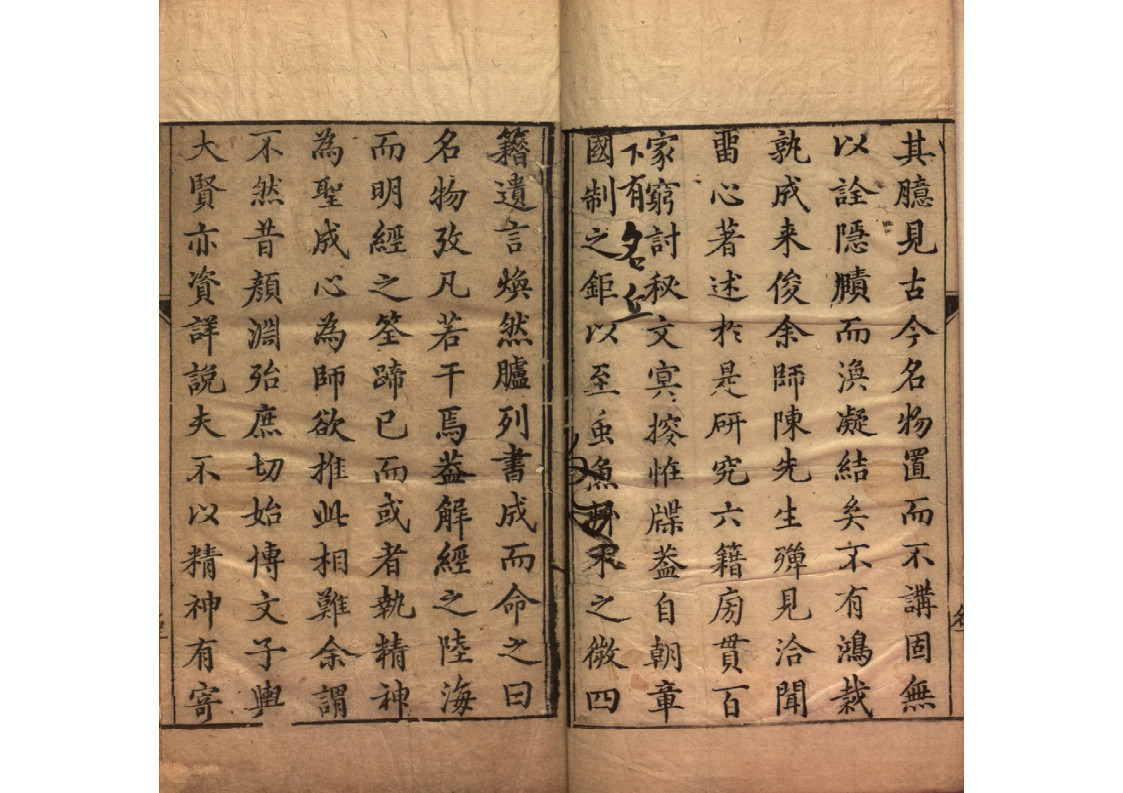 其臆見古今名物置而不講固無
以詮隱賾而渙凝結矣不有鴻裁
孰成来俊余師陳先生殫見洽聞
畱心著述於是研究六籍旁貫百
家窮討秘文冥搜恠牒葢自朝章
下有名丘
國制之鉅以至䖝魚艸木之微四
籍遺言煥然臚列書成而命之曰
名物攷凡若干焉葢解經之陸海
而明經之筌蹄已而或者執精神
為聖成心為師欲推此相難余謂
不然昔顏淵殆庶切始博文子輿
大賢亦資詳說夫不以精神有寄